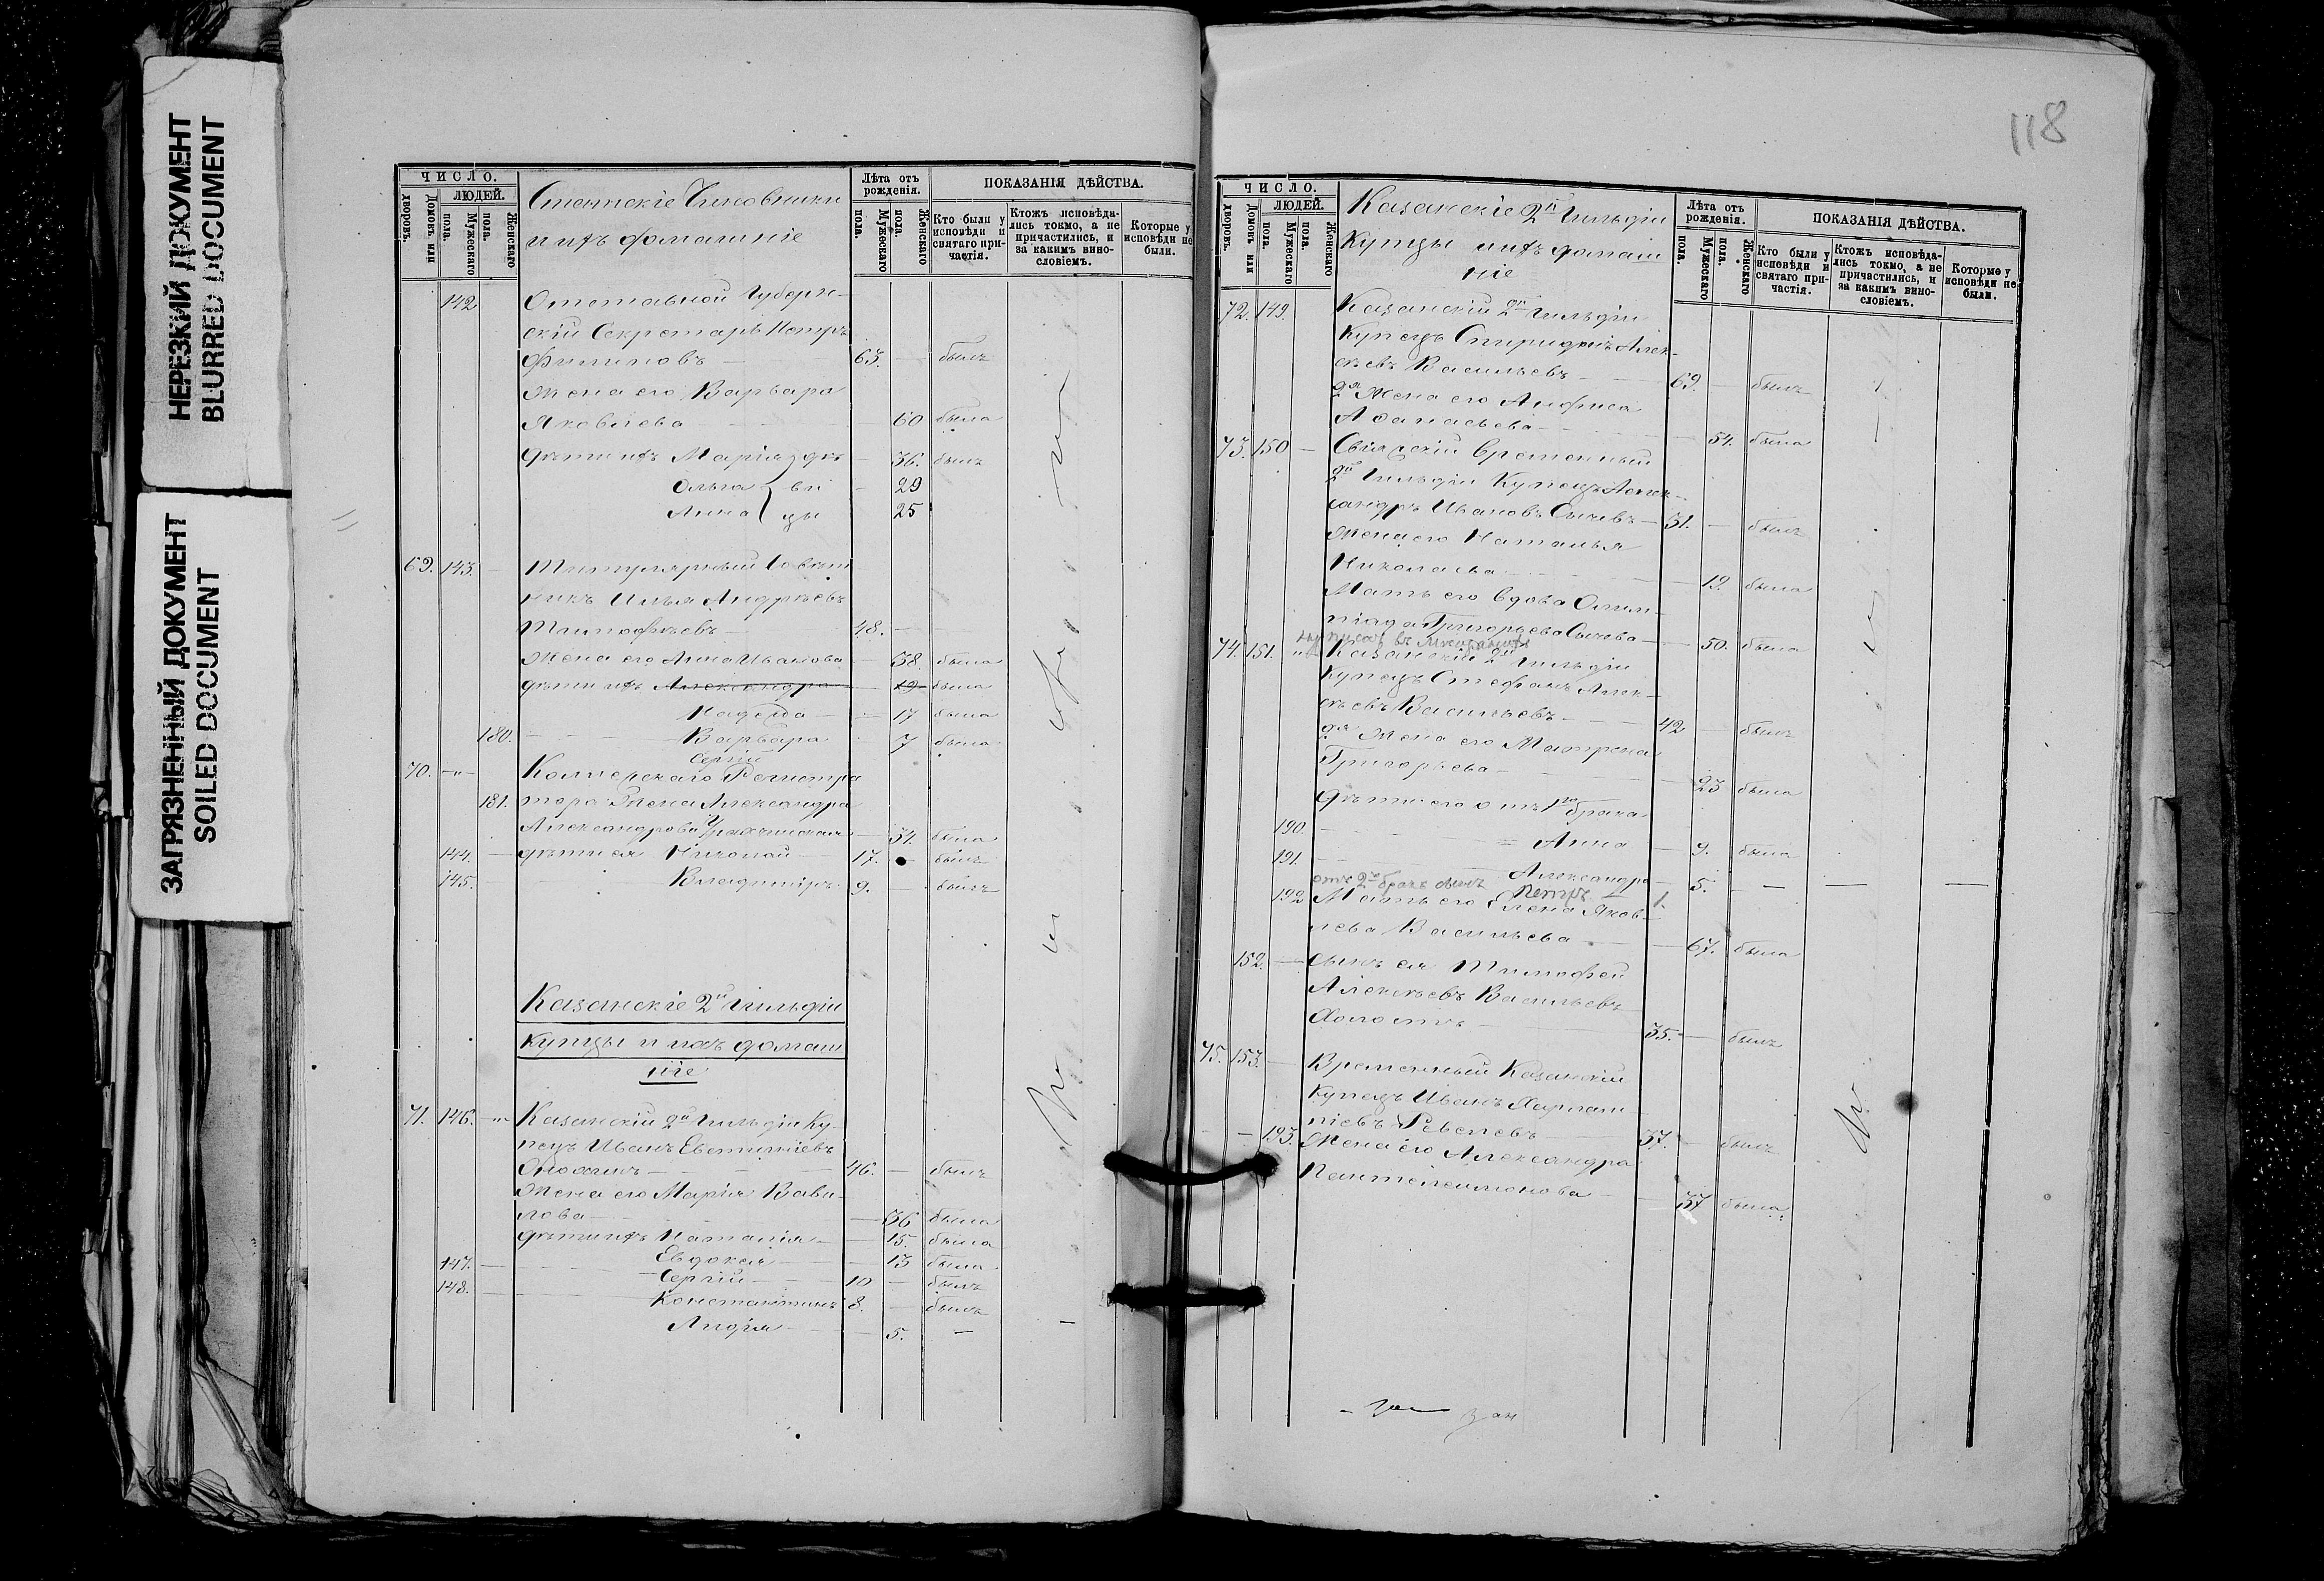 НЕРЕЗКИЙ ДОКУМЕНТ
BLURRED DOCUMENT
ЗАГРЯЗНЕННЫЙ ДОКУМЕНТ
SOILED DOCUMENT
ЧИСЛО.
ЛЮДЕЙ.
Домовъ или дворовъ.
Мужескаго пола.
Женскаго пола.
Статскіе Чиновники
и ихъ домашніе
Лѣта отъ рожденія.
Мужескаго пола.
Женскаго пола.
ПОКАЗАНІЯ ДѢЙСТВА.
Кто были у исповѣди и святаго причастія.
Ктожъ исповѣдались токмо, а не причастились, и за какимъ винословіемъ.
Которые у исповѣди не были.
142 Отставной Губерн-
скій Секретарь Петръ
Филиповъ 63. былъ
Жена его Варвара
Яковлева 60 была
Дѣти ихъ Марія дѣ- 36. былъ
Ольга ви 29
Анна цы 25
69. 143. Титулярный Совѣт
никъ Илья Андрѣевъ
Тимофѣевъ 48.
Жена его Анна Иванова 38. была
дѣти ихъ Александра 19 была
Надежда 17 была
180. Варвара 7 была
Сергій
70. Коллежскаго Регистра
181. тора Жена Александра
Александрова 34. была
144. дѣти ея Николай 17. былъ
145. Владимиръ 9. былъ
Казанскіе 2й Гильдіи
Купцы и ихъ домаш
ніе
71. 146. Казанскій 2й Гильдіи Ку-
пецъ Иванъ Евтихіевъ
46. былъ
Жена его Марія Вави-
лова 36 была
дѣти ихъ Наталія 15. была
Евдокія 13 была
147. Сергій 10 былъ
148. Константинъ 8. былъ
Лидія 5. —
118
ЧИСЛО.
ЛЮДЕЙ.
Домовъ или дворовъ.
Мужескаго пола.
Женскаго пола.
Казанскіе 2й Гильдіи
Купцы ихъ домаш
ніе
Лѣта отъ рожденія.
Мужескаго пола.
Женскаго пола.
ПОКАЗАНІЯ ДѢЙСТВА.
Кто были у исповѣди и святаго причастія.
Ктожъ исповѣдались токмо, а не причастились, и за какимъ винословіемъ.
Которые у исповѣди не были.
72. 149. Казанскій 2й Гильдіи
Купецъ Спиридонъ Алек-
сѣевъ Васильевъ 69. былъ
2я Жена его Анфиса
Аѳанасьева 54. была
73. 150 Свіяжскій временный
2й Гильдіи Купецъ Алек-
сандръ Ивановъ Сычевъ 31. былъ
Жена его Наталья
Николаева 19. была
Мать его вдова Олим-
піада Григорьева Сычева 50. была
74. 151. Казанскій 2й Гильдіи
Купецъ Стефанъ Алек-
сѣевъ Васильевъ 42 былъ
2я Жена его Матрена
Григорьева 23 была
дѣти его отъ 1го брака
190. Анна 9. была
191. Александра 5. — — —
отъ 2го брака сынъ Петръ 1.
192 Мать его Елена Яков-
лева Васильева 67. была
152. Сынъ ея Тимофей
Алексѣевъ Васильевъ
Холостъ 35. былъ
75. 153. Временный Казанскій
Купецъ Иванъ Харлам
піевъ 37. былъ
193. Жена его Александра
Пантелеимонова 37 была